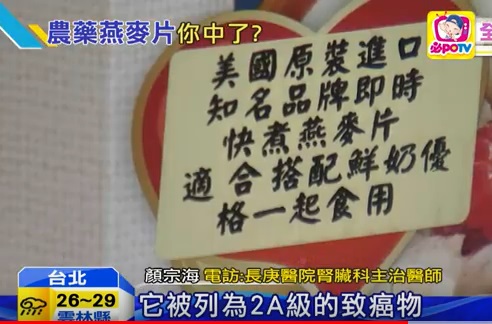 農藥燕麥片你中了?
必POTV
全
美國原裝進口
知名品牌即時
快煮燕麥片
適合搭配鮮奶優
格一起食用
台北
顏宗海 電訪:長庚醫院腎臟科主治醫師
26~29
雲林縣
它被列為2A級的致癌物